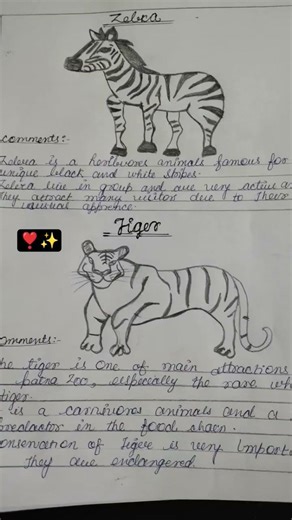 Zebra
comments:-
Zebra is a herbivores animals famous for
unique black and white stripes.
Zebra live in group and are very active a
They attract many visitor due to their
unusual apprence.
Tiger
omments:-
he tiger is One of main attractions
patna Zoo, especially the rare wh
tiger.
is a carnivores animals and a
predactor in the food chaen.
onservation of tigere is very Importa
They are endangered.